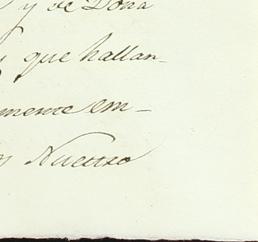 y de Doña
que hallan-
mente em-
Nuestro